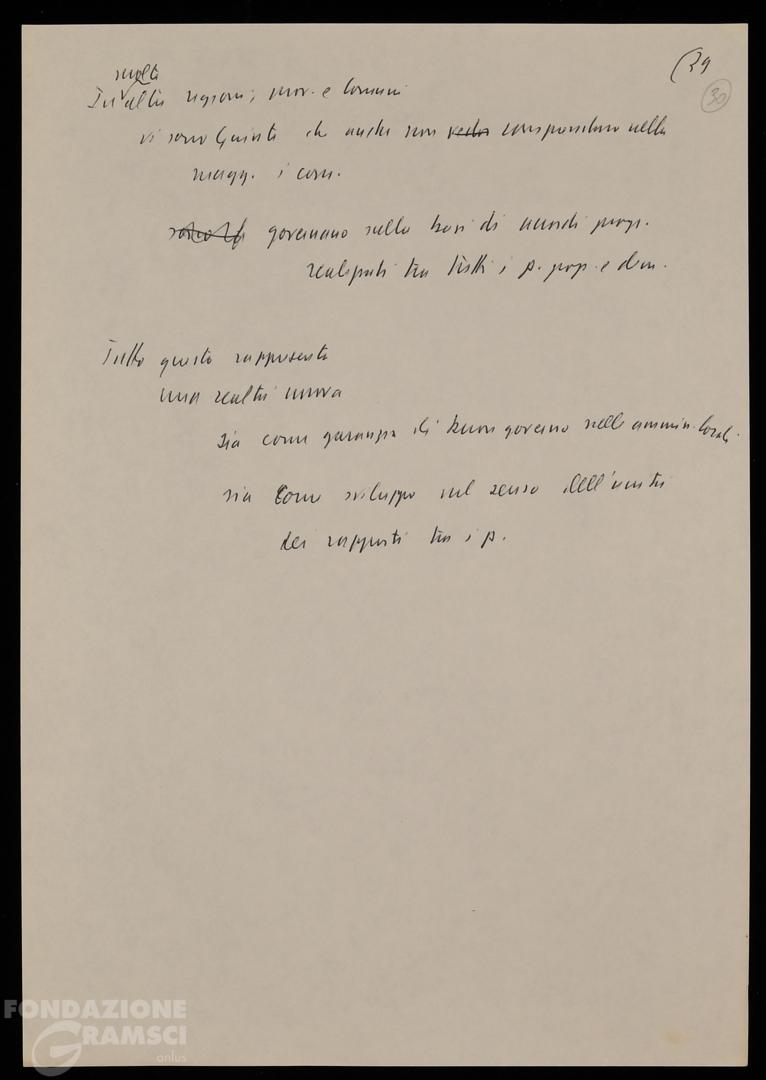 (29
30
molte
In altre regioni, prov. e comuni
vi sono Giunte che anche non vedon comprendono nella
magg. i com.
governano sulla base di accordi progr.
realizzati tra tutti i p. pop. e dem.
Tutto questo rappresenta
una realtà nuova
sia come garanzia di buon governo nelle ammin. locali.
sia come sviluppo nel senso dell'unità
dei rapporti tra i p.
FONDAZIONE
GRAMSCI
onlus